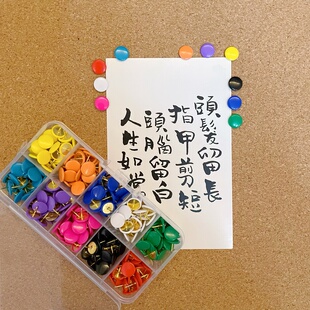 頭髮留長
指甲剪短
頭腦留白
人生如常